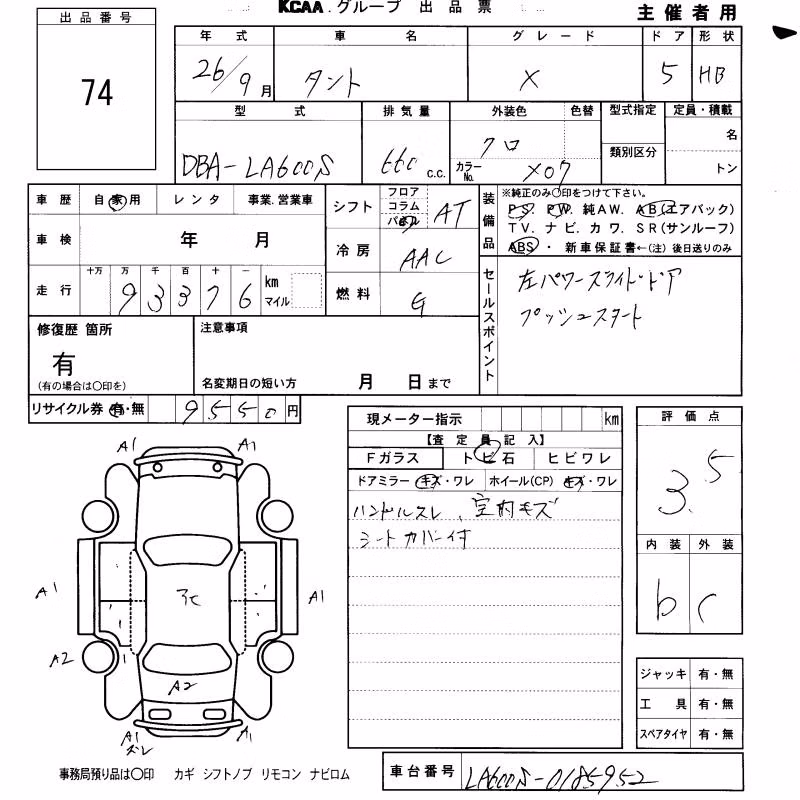 KCAA.グループ 出品票
主催者用
出品番号
74
年式 車名 グレード ドア 形状
26/9月 タント X 5 HB
型式 排気量 外装色 色替 型式指定 定員・積載
DBA-LA600S 660 c.c. クロ カラーNo. X07 類別区分 名 トン
車歴 自家用 レンタ 事業.営業車
車検 年 月
走行 十万 万 千 百 十 一
93376 km マイル
シフト フロア コラム パネル AT
冷房 AAC
燃料 G
装備品 ※純正のみ〇印をつけて下さい。
PS. PW. 純AW. AB(エアバック)
TV. ナビ. カワ. SR(サンルーフ)
ABS・新車保証書←(注) 後日送りのみ
セールスポイント
左パワースライドドア
プッシュスタート
修復歴 箇所
有
(有の場合は〇印を)
注意事項
名変期日の短い方 月 日まで
リサイクル券 有・無 9550円
現メーター指示 km
【査定員記入】
Fガラス トビ石 ヒビワレ
ドアミラー キズ・ワレ ホイール(CP) キズ・ワレ
ハンドルスレ、室内キズ
シートカバー付
評価点
3.5
内装 外装
b c
ジャッキ 有・無
工具 有・無
スペアタイヤ 有・無
A1 A1
A1 A1
A2
A2
A1 A1
ズレ
事務局預り品は〇印 カギ シフトノブ リモコン ナビロム
車台番号 LA600S-0185952